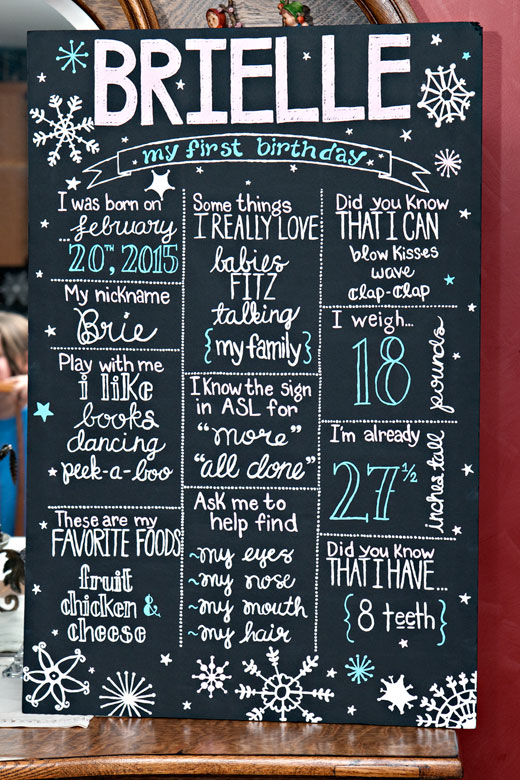 BRIELLE
my first birthday
I was born on
... february
20TH, 2015
My nickname
Brie
Play with me
i like
books
dancing
peek-a-boo
These are my
FAVORITE FOODS
fruit
chicken &
cheese
Some things
I REALLY LOVE
babies
FITZ
talking
{my family}
I Know the sign
in ASL for
"more"
"all done"
Ask me to
help find
~my eyes
~my nose
~my mouth
~my hair
Did you Know
THAT I CAN
blow Kisses
wave
clap-clap
I weigh...
18 pounds
I'm already
27 1/2 inches tall
Did you Know
THAT I HAVE...
{8 teeth}